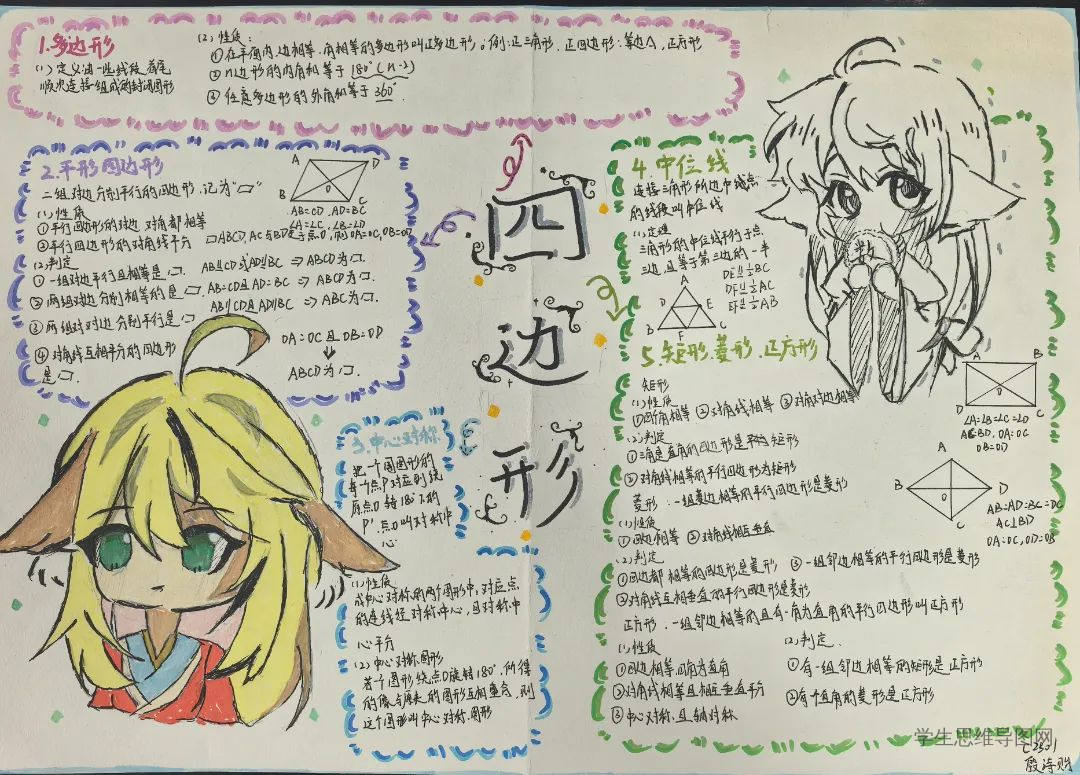 1.多边形
(1)定义:由一些线段首尾
顺次连接组成的封闭图形
(2)性质:
①在平面内,边相等.角相等的多边形叫正多边形。例:正三角形.正四边形:等边△,正方形
②n边形的内角和等于180°(n-2)
③任意多边形的外角和等于360°
2.平行四边形
二组对边分别平行的四边形.记为“▱”
(1)性质
①平行四边形的对边.对角都相等
②平行四边形的对角线平分
▱ABCD,AC与BD交于点O,则OA=OC,OB=OD
A
D
B
C
O
AB=CD,AD=BC
∠A=∠C,∠B=∠D
(2)判定
①一组对边平行且相等是▱.
AB∥CD或AD∥BC ⇒ ABCD为▱.
②两组对边分别相等的是▱.
AB=CD且AD=BC ⇒ ABCD为▱.
③两组对对边分别平行是▱
AB∥CD且AD∥BC ⇒ ABC为▱.
④对角线互相平分的四边形
是▱.
OA=OC且OB=OD
ABCD为▱.
3.中心对称
把一个图图形的
每个点P对应到绕
原点O转180°下的
P'点O叫对称中
心
(1)性质
成中心对称的两个图形中,对应点
的连线经对称中心,且对称中
心平分
(2)中心对称图形
若个图形绕点O旋转180°,所得
的像与原来的图形互相重合,则
这个图形叫中心对称图形
四
边
形
4.中位线
连接三角形两边中线点
的线段叫中位线
(1)定理
三角形的中位线平行于第
三边,且等于第三边的一半
DE∥=½BC
DF∥=½AC
EF∥=½AB
A
D
E
B
F
C
数
5.矩形,菱形,正方形
矩形
(1)性质
①四角相等 ②对角线相等 ③对角对边相等
(2)判定
①三角是直角的四边形是矩形
②对角线相等的平行四边形为矩形
A
B
D
C
O
∠A=∠B=∠C=∠D
AC=BD,OA=OC
OB=OD
菱形.一组邻边相等的平行四边形是菱形
(1)性质
①四边相等 ②对角线相互垂直
(2)判定
①四边都相等的四边形是菱形
③一组邻边相等的平行四边形是菱形
②对角线互相垂直的平行四边形是菱形
A
B
D
O
C
AB=AD=BC=DC
AC⊥BD
OA=OC,OD=OB
正方形.一组邻边相等的且有一角为直角的平行四边形叫正方形
(1)性质
①四边相等,四角为直角
②对角线相等且相互垂直平分
③中心对称且轴对称
(2)判定
①有一组邻边相等的矩形是正方形
②有个直角的菱形是正方形
学生思维导图网
C2501